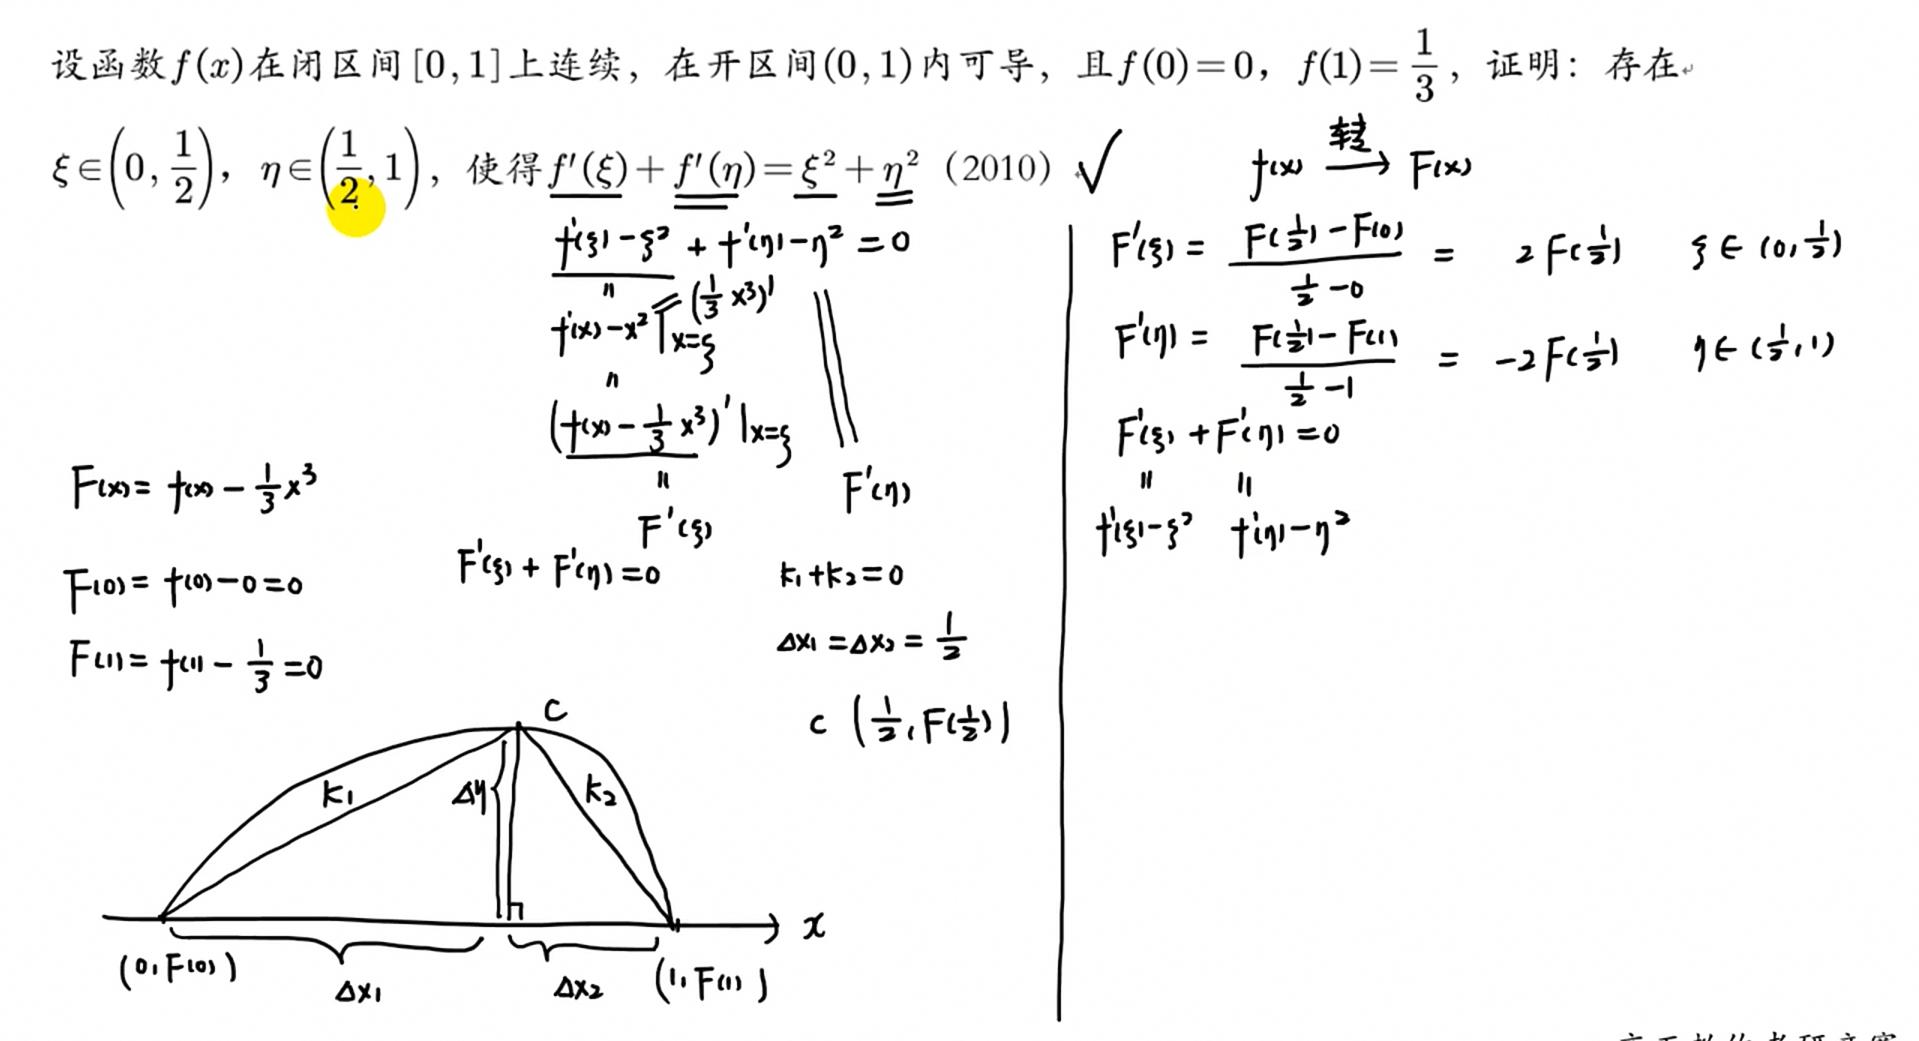 设函数f(x)在闭区间[0,1]上连续，在开区间(0,1)内可导，且f(0)=0，f(1)=1/3，证明：存在
ξ∈(0,1/2)，η∈(1/2,1)，使得f'(ξ)+f'(η)=ξ²+η²（2010）√
f'(ξ)-ξ²+f'(η)-η²=0
f'(x)-x²|x=ξ
(1/3 x³)'
(f(x)-1/3 x³)'|x=ξ
F'(ξ)
F'(η)
F(x)=f(x)-1/3 x³
F(0)=f(0)-0=0
F(1)=f(1)-1/3=0
F'(ξ)+F'(η)=0
k₁+k₂=0
Δx₁=Δx₂=1/2
C (1/2, F(1/2))
C
k₁
Δy
k₂
x
(0, F(0))
Δx₁
Δx₂
(1, F(1))
f(x) 转→ F(x)
F'(ξ)=(F(1/2)-F(0))/(1/2-0)=2F(1/2) ξ∈(0,1/2)
F'(η)=(F(1/2)-F(1))/(1/2-1)=-2F(1/2) η∈(1/2,1)
F'(ξ)+F'(η)=0
f'(ξ)-ξ² f'(η)-η²